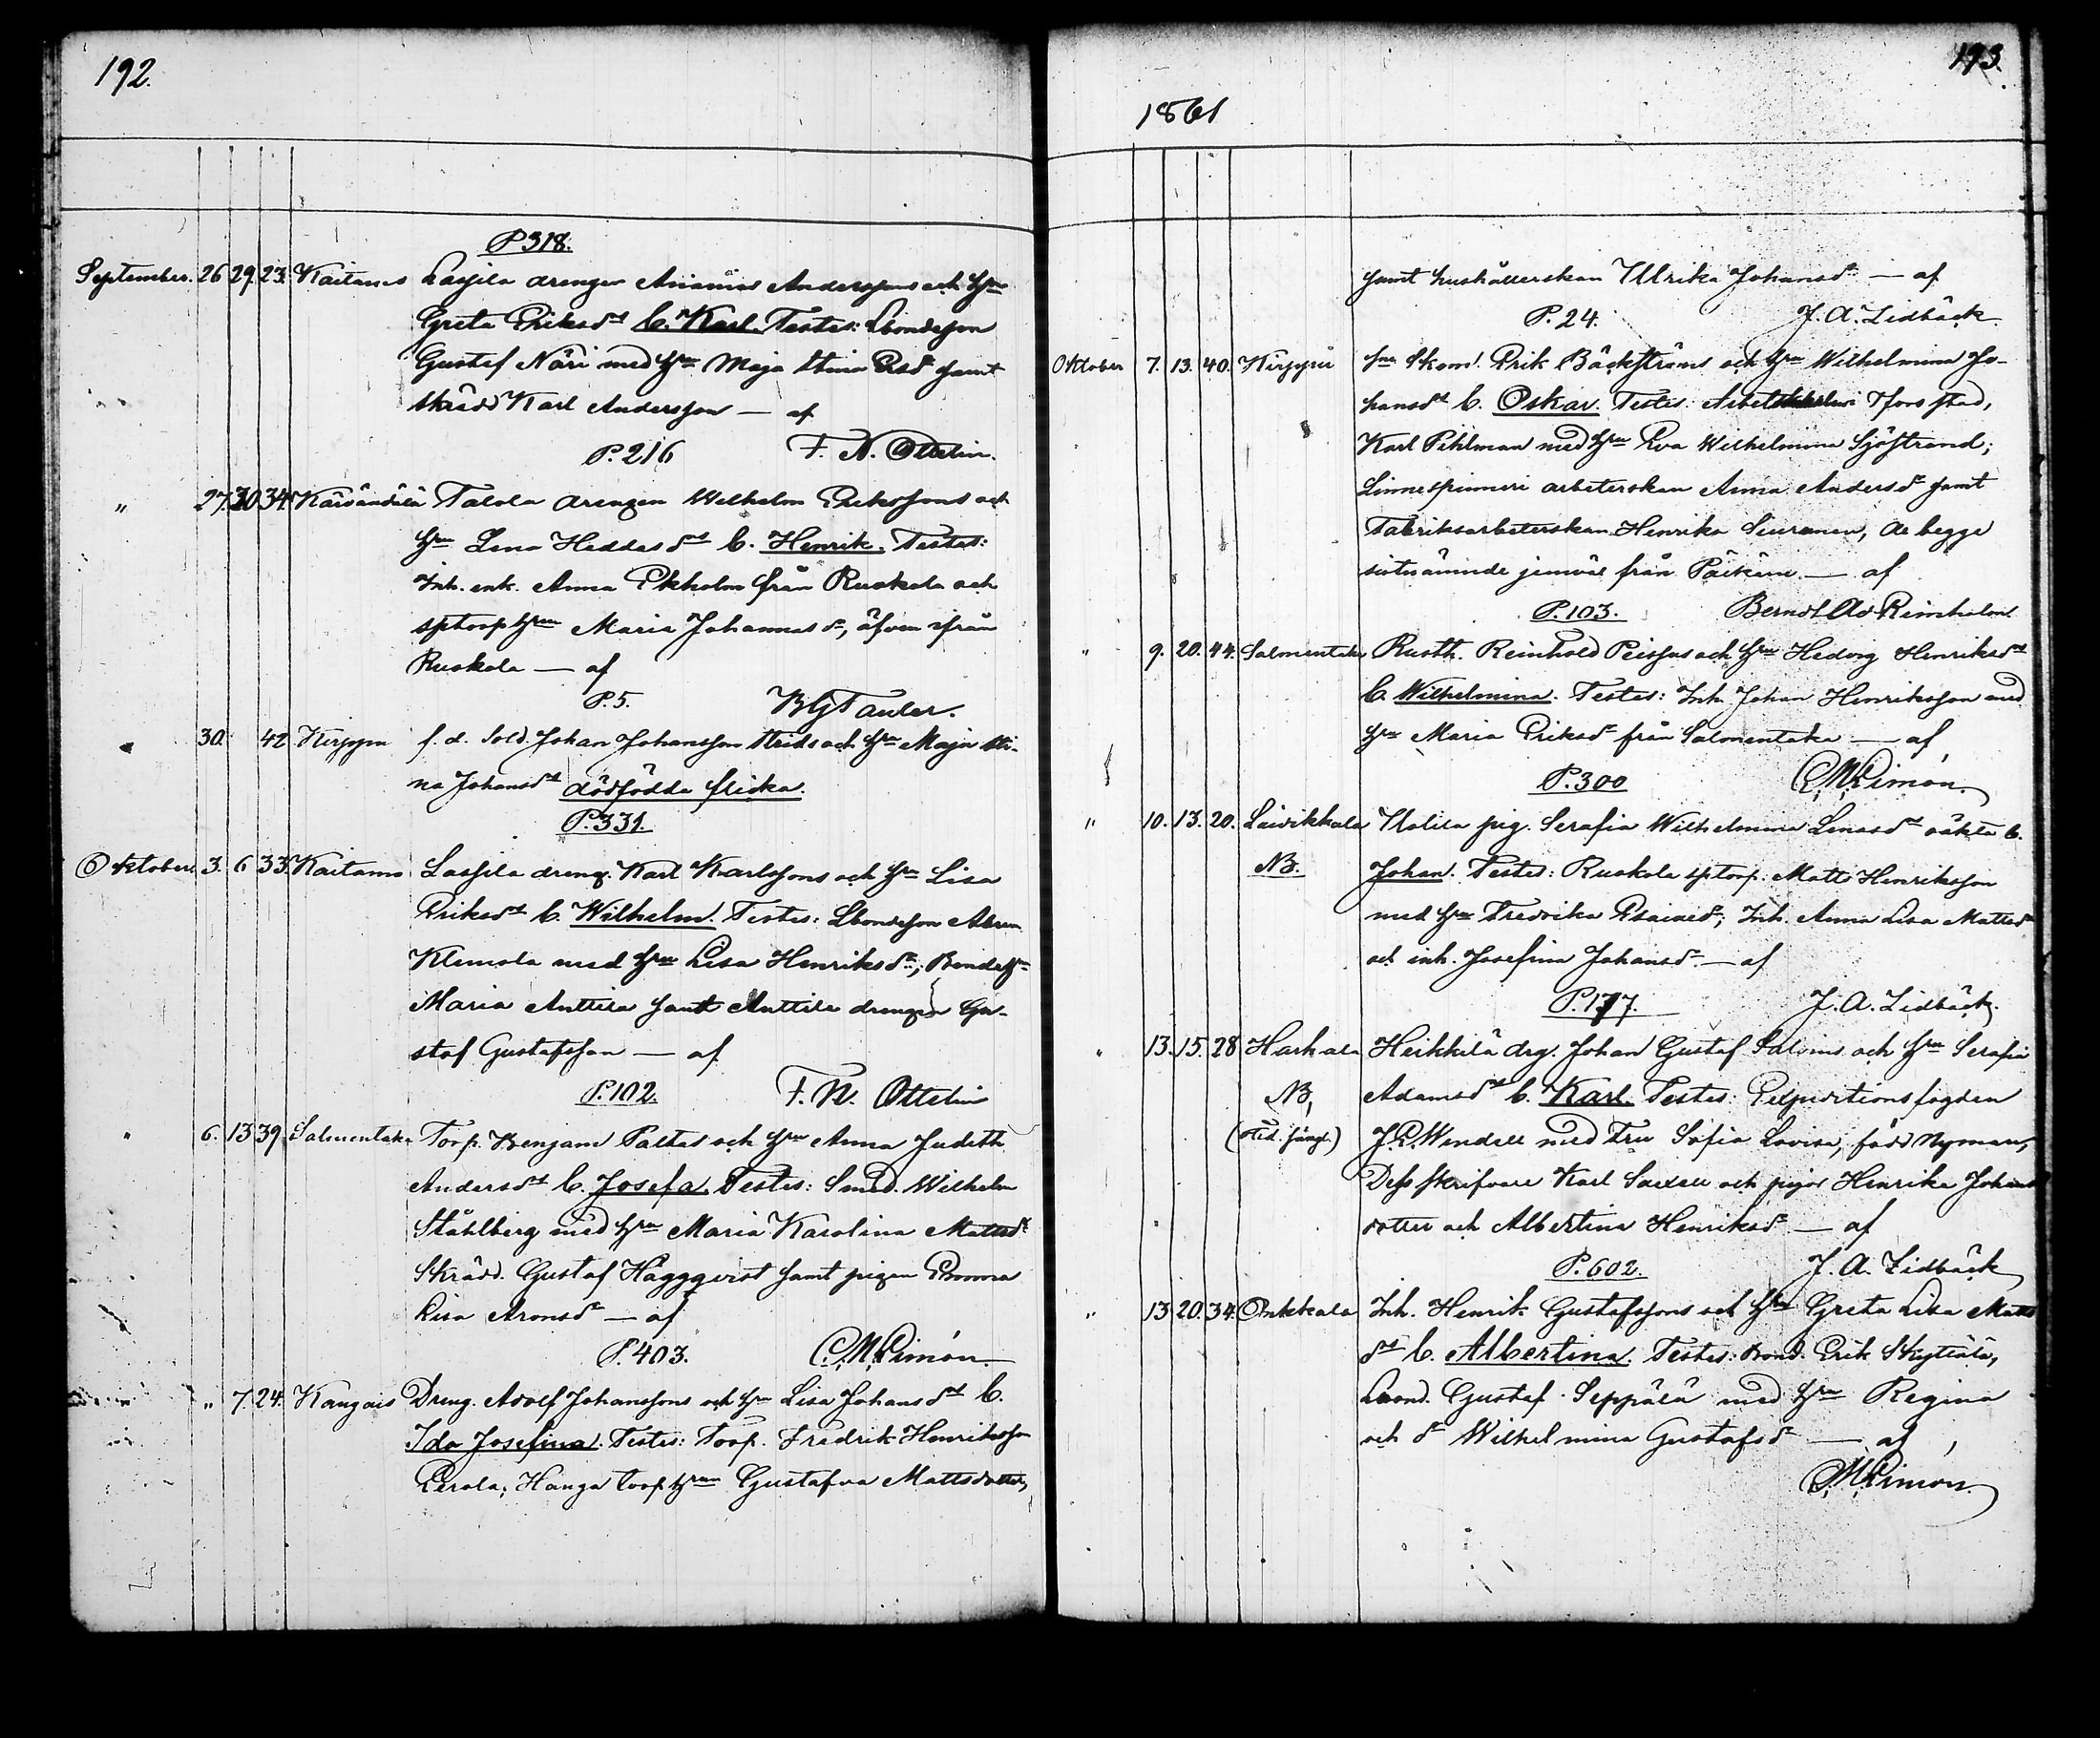 192.
P 318.
September. 26 29. 23. Kaitamo Lassila drengen Ananias Anderssons och Hru
Greta Eriksdr b. Karl. Testes: Lbondeson
Gustaf Näri med Hru Maja Stina Ersdr samt
skrädd Karl Andersson — af
P. 216 F. W. Ottelin.
" 27. 30 34. Talola drengen Wilhelm Erikssons och
Hru Lena Heddasdr b. Henrik. Testes:
Inh. enk. Anna Ekholm från Ruokola och
sptorp Hru Maria Johannasdr, äfven ifrån
Ruokola — af
P. 5. BGTauler.
" 30. 42 Kirjapu f. d. Sold. Johan Johansson Strids och Hru Maja Sti-
na Johansdr dödfödda flicka.
P. 331.
Oktober. 3. 6 33. Kaitamo Lassila dreng. Karl Karlssons och Hru Lisa
Eriksdr b. Wilhelm. Testes: Lbondeson Abram
Klemola med Hru Lisa Henriksdr; Bonde Hru
Maria Anttila samt Anttila drengen Gu-
staf Gustafsson — af
P. 102. F. W. Ottelin
" 6. 13 39. Salmentaka Torp. Benjam Paltas och Hru Anna Judith
Andersdr b. Josefa. Testes: Smed. Wilhelm
Ståhlberg med Hru Maria Karolina Mattsdr
Skrädd. Gustaf Häggqvist samt pigan Emma
Lisa Aronsdr — af
P. 403. C. M. Limón.
" 7. 24. Kangais Dreng. Adolf Johanssons och Hru Lisa Johansdr b.
Ida Josefina. Testes: Torp. Fredrik Henriksson
Eerola; Hanga torp Hru Gustafva Mattsdotter,
193.
1861
samt hushållerskan Ulrika Johansdr — af
P. 24. J. A. Lidbäck.
Oktober 7. 13. 40. Skom. Erik Bäckströms och Hru Wilhelmina Jo-
hansdr b. Oskar. Testes: Tfors stad,
Karl Pihlman med Hru Eva Wilhelmina Sjöstrand;
Linnespinneri arbeterskan Anna Andersdr samt
Fabriksarbeterskan Henrika Seuranen, de begge
sistnämnde jemväl från Pälkäne — af
P. 103. Berndt Ad Reinholm.
" 9. 20. 44. Salmentaka Rusth. Reinhold Peissas och Hru Hedvig Henriksdr
b. Wilhelmina. Testes: Inh. Johan Henriksson med
Hru Maria Eriksdr från Salmentaka — af
P. 300 C. M. Limón.
" 10. 13. 20. Laivikkala Uotila pig. Serafia Wilhelmina Lenasdr oäkta b.
NB. Johan. Testes: Ruokola sptorp. Matts Henriksson
med Hru Fredrika Esaiaedr; Inh. Anna Lisa Mattsdr
och inh. Josefina Johansdr — af
P. 177. J. A. Lidbäck.
" 13. 15. 28 Harhala Heikkilä drg. Johan Gustaf Saloins och Hru Serafia
NB, Adamsdr b. Karl. Testes: Expeditions fogden
J. E. Wendell med Fru Sofia Lovisa, född Nyman,
Dess skrifvare Karl Saxell och pigor Henrika Johans
dotter och Albertina Henriksdr — af
P. 602. J. A. Lidbäck
" 13 20. 34. Onkkala Inh. Henrik Gustafssons och Hru Greta Lisa Matts
dr b. Albertina. Testes: Bond. Erik Skyttälä,
Lbond. Gustaf Seppälä med Hru Regina
och dr Wilhelmina Gustafsdr — af
C. M. Limón.